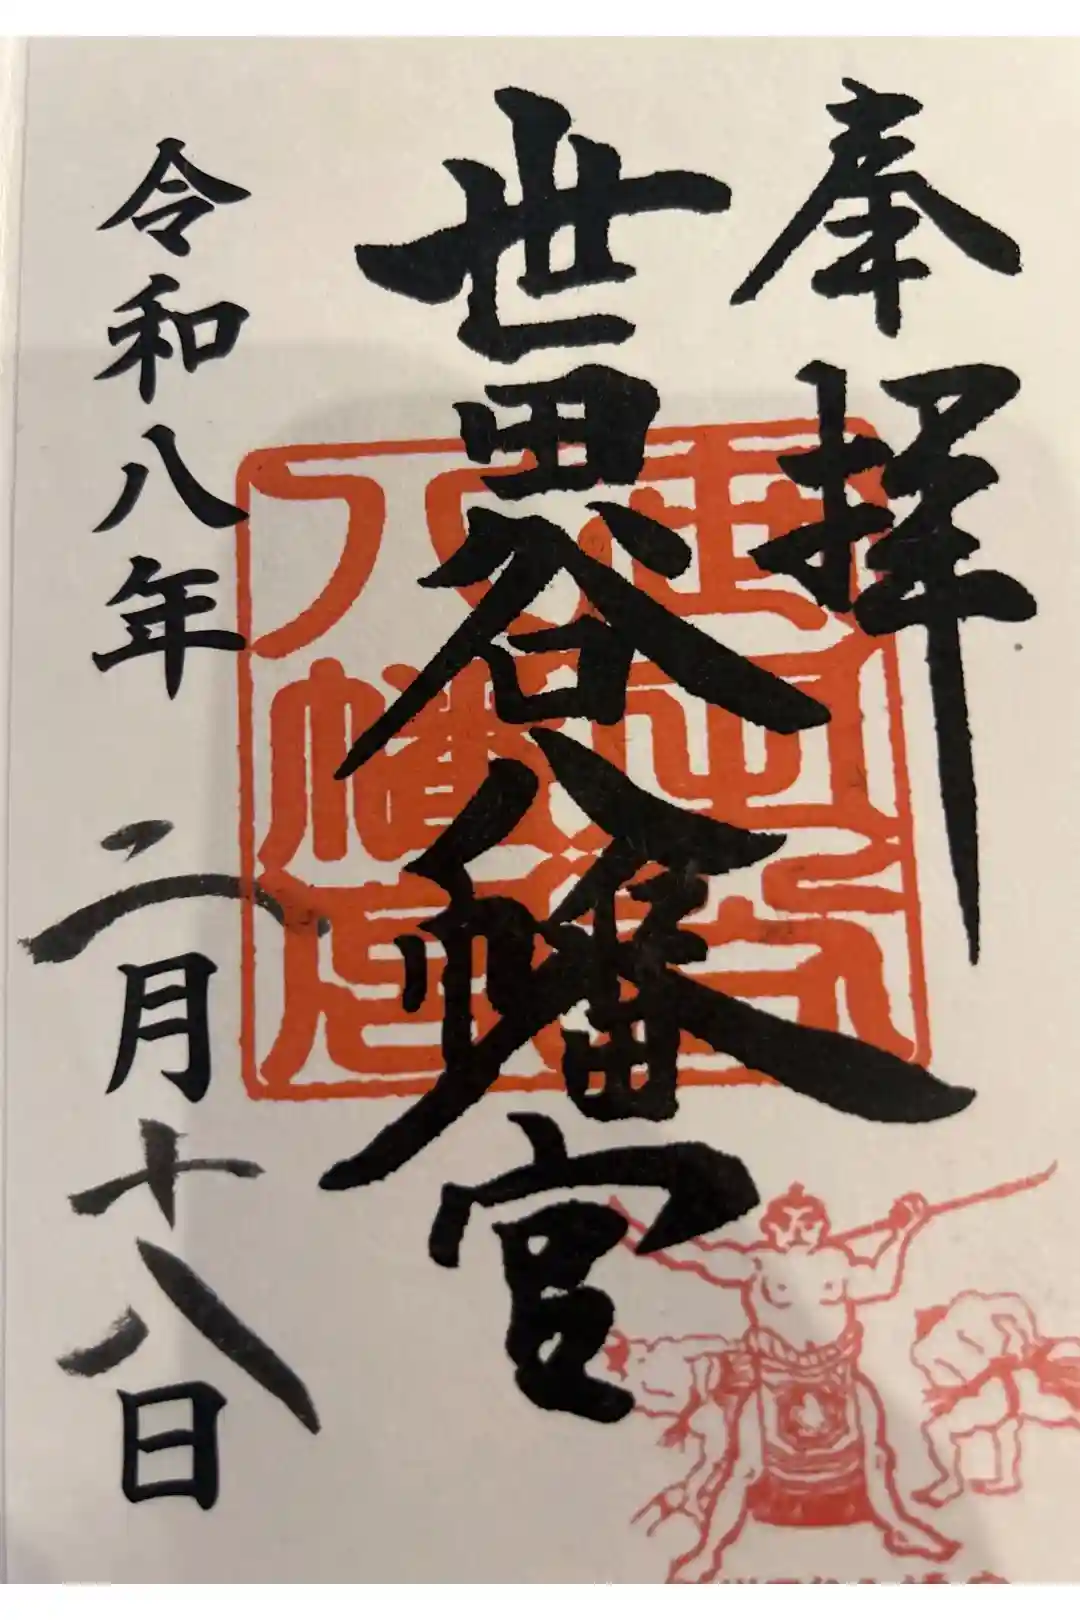 奉拝
世田谷八幡宮
令和八年二月十八日
世田谷
八幡宮